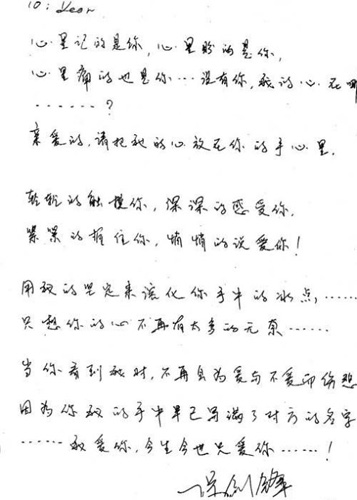 TO: Dear
心里记的是你,心里盼的是你,
心里痛的也是你…没有你,我的心在哪
……?
亲爱的,请把我的心放在你的手心里.
轻轻的触摸你,深深的感受你.
紧紧的握住你,悄悄的说爱你!
用我的坚定来溶化你手中的冰点,……
只愿你的心不再有太多的无奈……
当你看到我时,不再会为爱与不爱而伤愁
因为你我的手中早已写满了对方的名字
……我爱你,今生今世只爱你……!